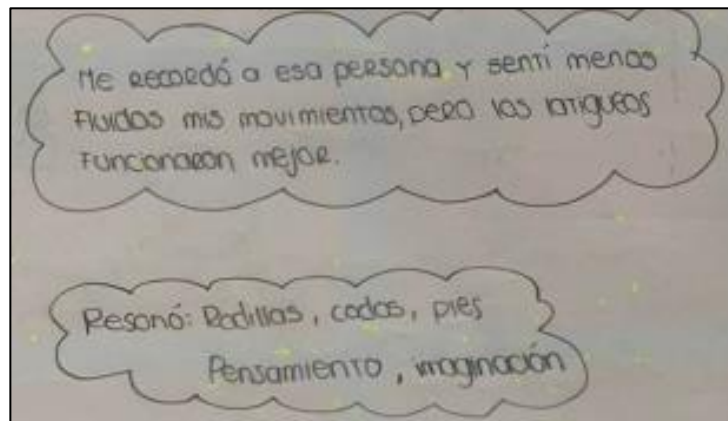 Me recordó a esa persona y sentí menos
fluidos mis movimientos, pero los latigueos
funcionaron mejor.
Resonó: Rodillas, codos, pies
Pensamiento, imaginación